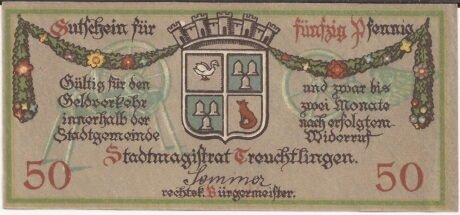 Gutschein für fünfzig Pfennig
Gültig für den
Geldverkehr
innerhalb der
Stadtgemeinde
und zwar bis
zwei Monate
nach erfolgtem
Widerruf
Stadtmagistrat Treuchtlingen.
Sommer
rechtsk. Bürgermeister.
50
50